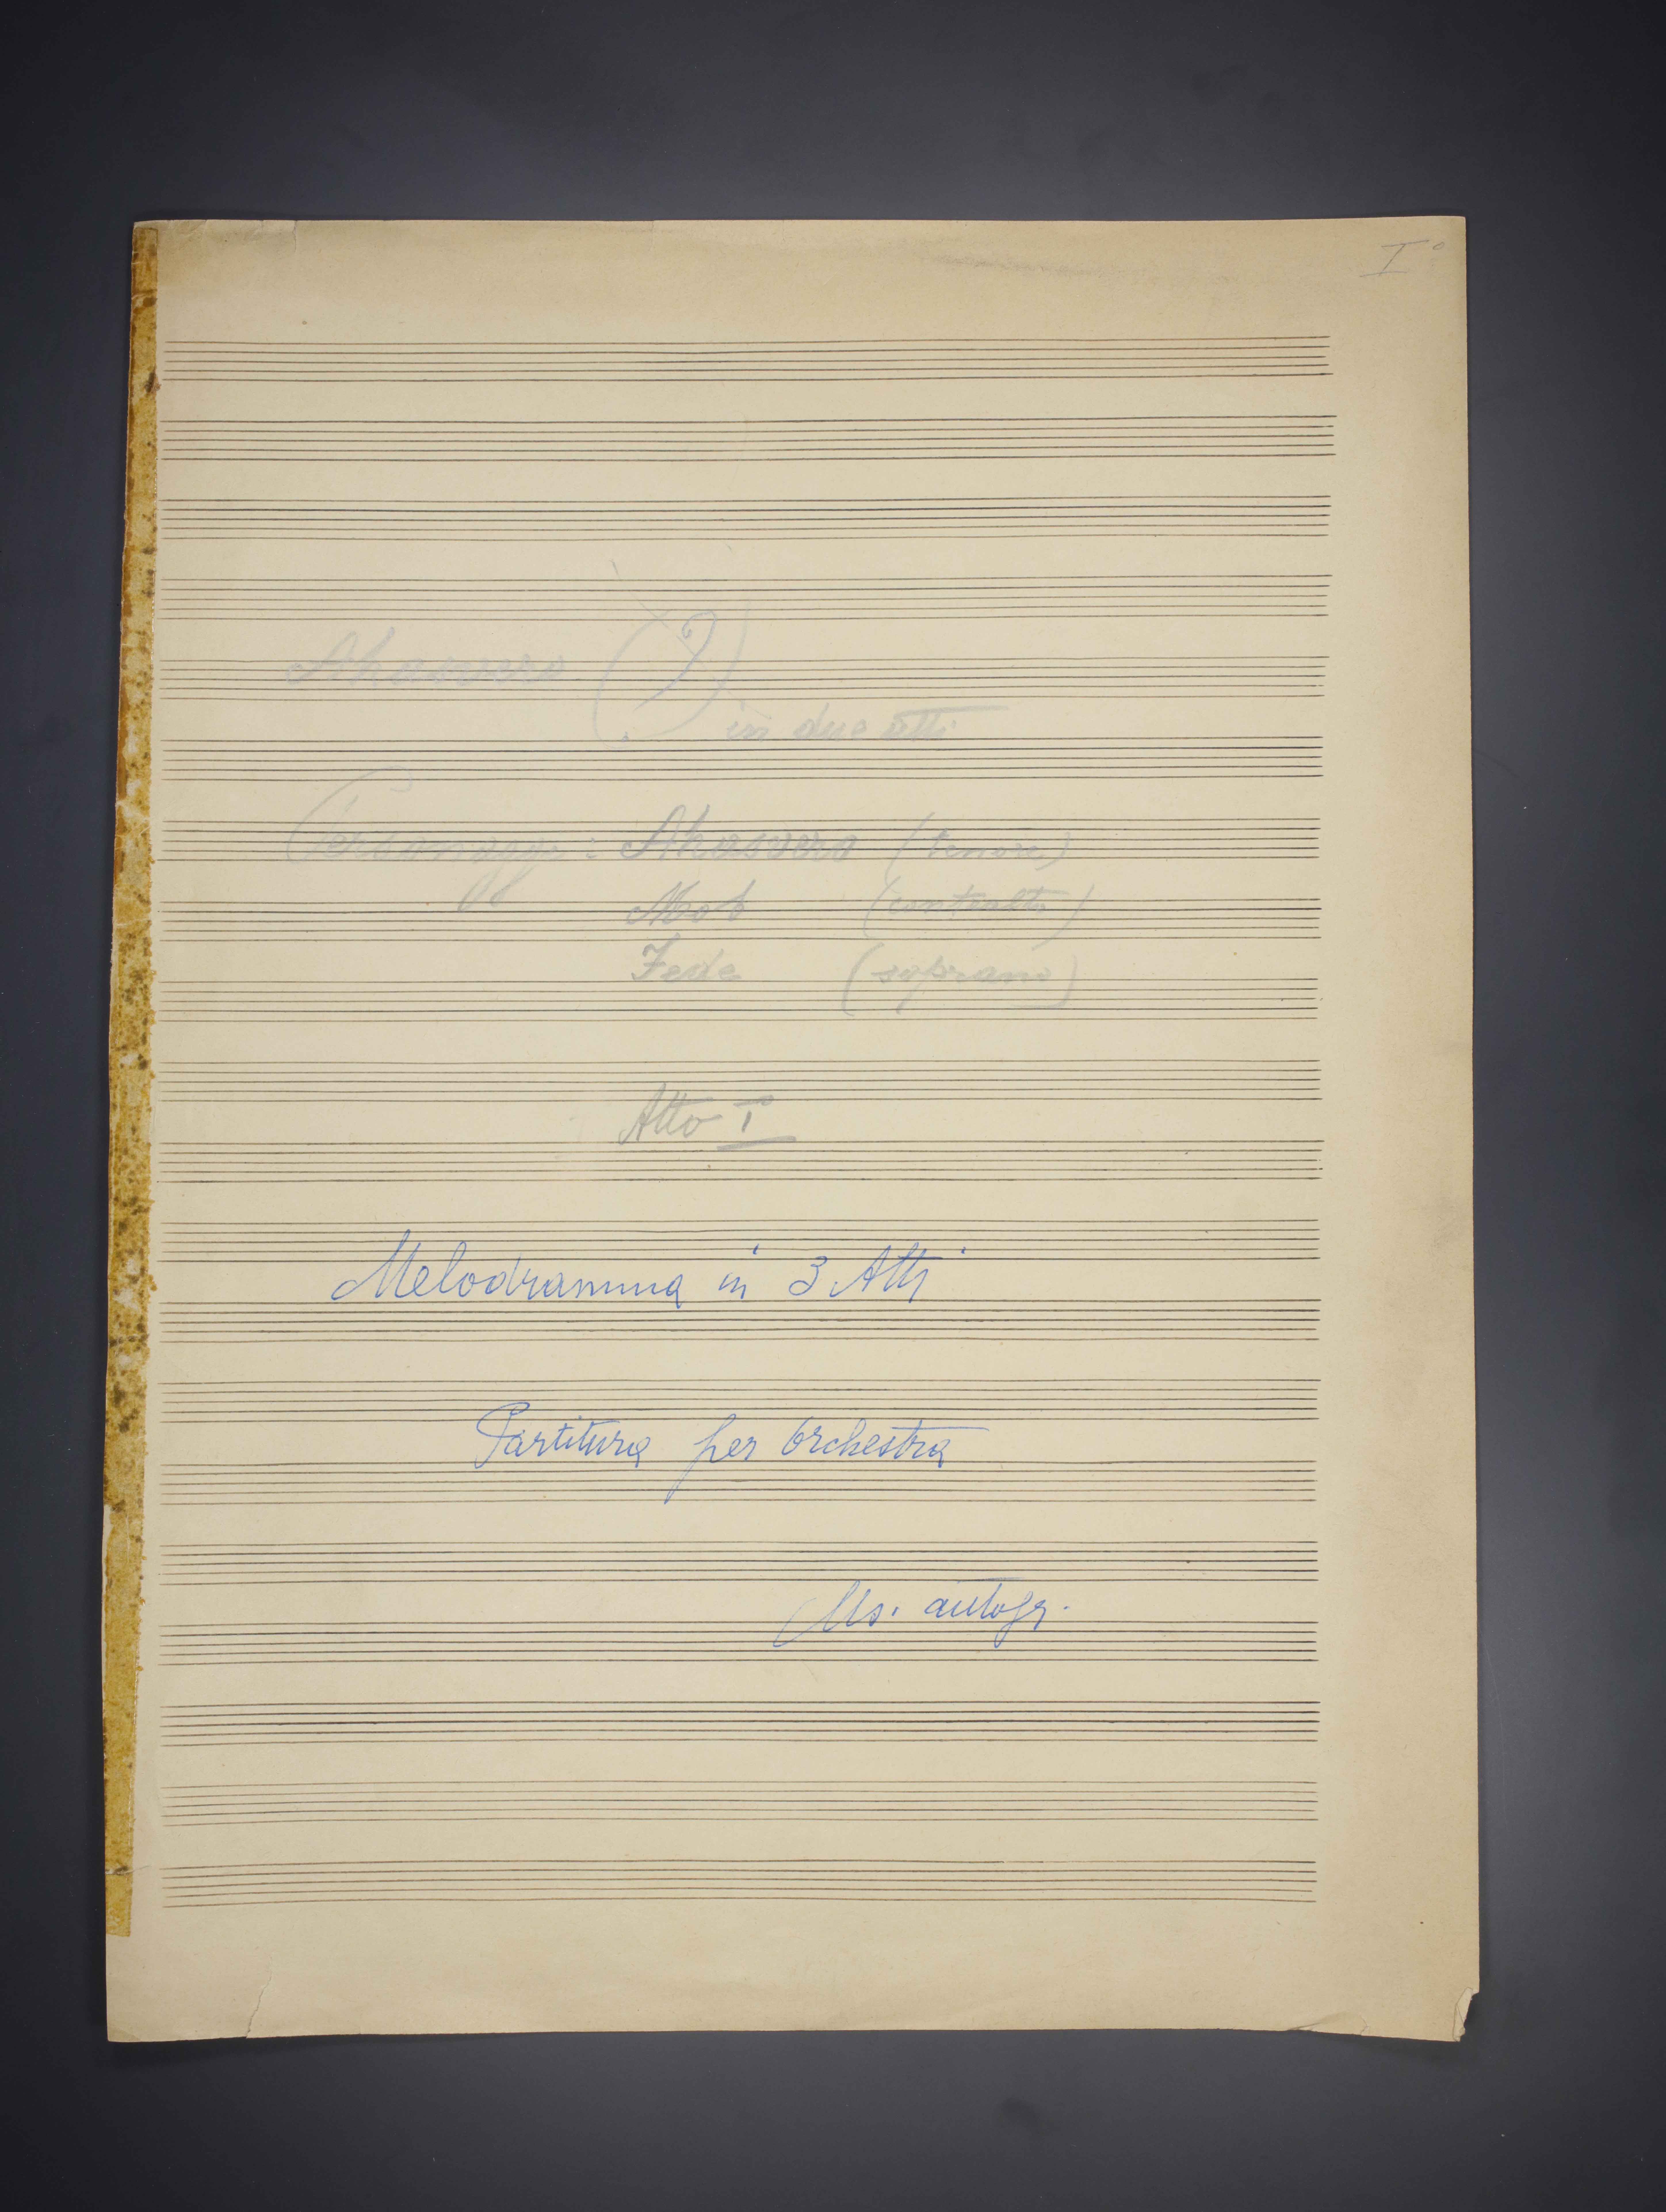 I°
Ahasvero (?)
in due atti
Personaggi: Ahasvero (tenore)
Mob (contralto)
Fede (soprano)
Atto I
Melodramma in 3 Atti
Partitura per Orchestra
Ms. autogr.